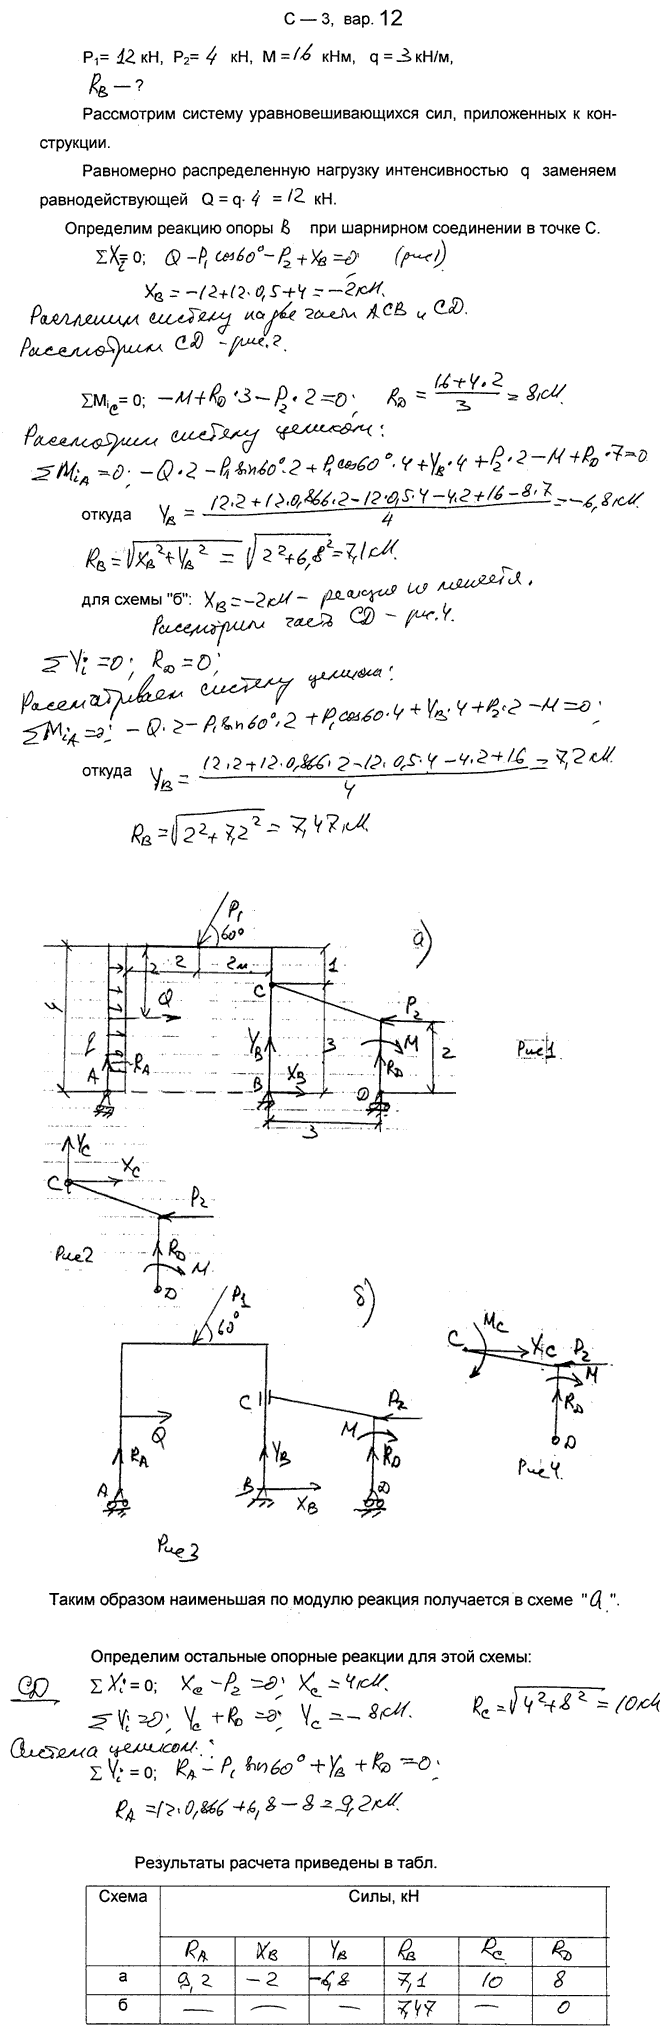 С — 3, вар. 12
P₁= 12 кН, P₂= 4 кН, М = 16 кНм, q = 3 кН/м,
R_B — ?
Рассмотрим систему уравновешивающихся сил, приложенных к кон-
струкции.
Равномерно распределенную нагрузку интенсивностью q заменяем
равнодействующей Q = q· 4 = 12 кН.
Определим реакцию опоры B при шарнирном соединении в точке С.
ΣX_i = 0; Q − P₁ cos60° − P₂ + X_B = 0; (рис 1)
X_B = −12+12·0,5+4 = −2 кН.
Расчленим систему на две части ACB и CD.
Рассмотрим CD – рис. 2.
ΣM_iC = 0; −M + R_D·3 − P₂·2 = 0; R_D = (16+4·2)/3 = 8 кН.
Рассмотрим систему целиком:
ΣM_iA = 0; −Q·2 − P₁ sin60°·2 + P₁ cos60°·4 + Y_B·4 + P₂·2 − M + R_D·7 = 0
откуда Y_B = (12·2+12·0,866·2−12·0,5·4−4·2+16−8·7)/4 = −6,8 кН.
R_B = √(X_B² + Y_B²) = √(2²+6,8²) = 7,1 кН.
для схемы "б": X_B = −2 кН – реакция не меняется.
Рассмотрим часть CD – рис. 4.
ΣY_i = 0; R_D = 0;
Рассматриваем систему целиком:
ΣM_iA = 0; −Q·2 − P₁ sin60°·2 + P₁ cos60·4 + Y_B·4 + P₂·2 − M = 0;
откуда Y_B = (12·2+12·0,866·2−12·0,5·4−4·2+16)/4 = 7,2 кН.
R_B = √(2²+7,2²) = 7,47 кН.
P₁
60°
а)
2
2
2м
1
4
C
Q
P₂
q
Y_B
3
M
2
Рис 1
A
R_A
X_B
R_D
B
D
3
Y_C
C
X_C
P₂
Рис 2
R_D
M
D
P₁
60°
б)
C
M_C
X_C
P₂
M
C
P₂
Q
M
R_D
R_A
Y_B
R_D
D
A
B
X_B
D
Рис 4.
Рис 3
Таким образом наименьшая по модулю реакция получается в схеме "а".
Определим остальные опорные реакции для этой схемы:
CD ΣX_i = 0; X_C − P₂ = 0; X_C = 4 кН. R_C = √(4²+8²) = 10 кН
ΣY_i = 0; Y_C + R_D = 0; Y_C = −8 кН.
Система целиком:
ΣY_i = 0; R_A − P₁ sin60° + Y_B + R_D = 0;
R_A = 12·0,866+6,8−8 = 9,2 кН.
Результаты расчета приведены в табл.
Схема Силы, кН
R_A X_B Y_B R_B R_C R_D
а 9,2 −2 −6,8 7,1 10 8
б — — — 7,47 — 0